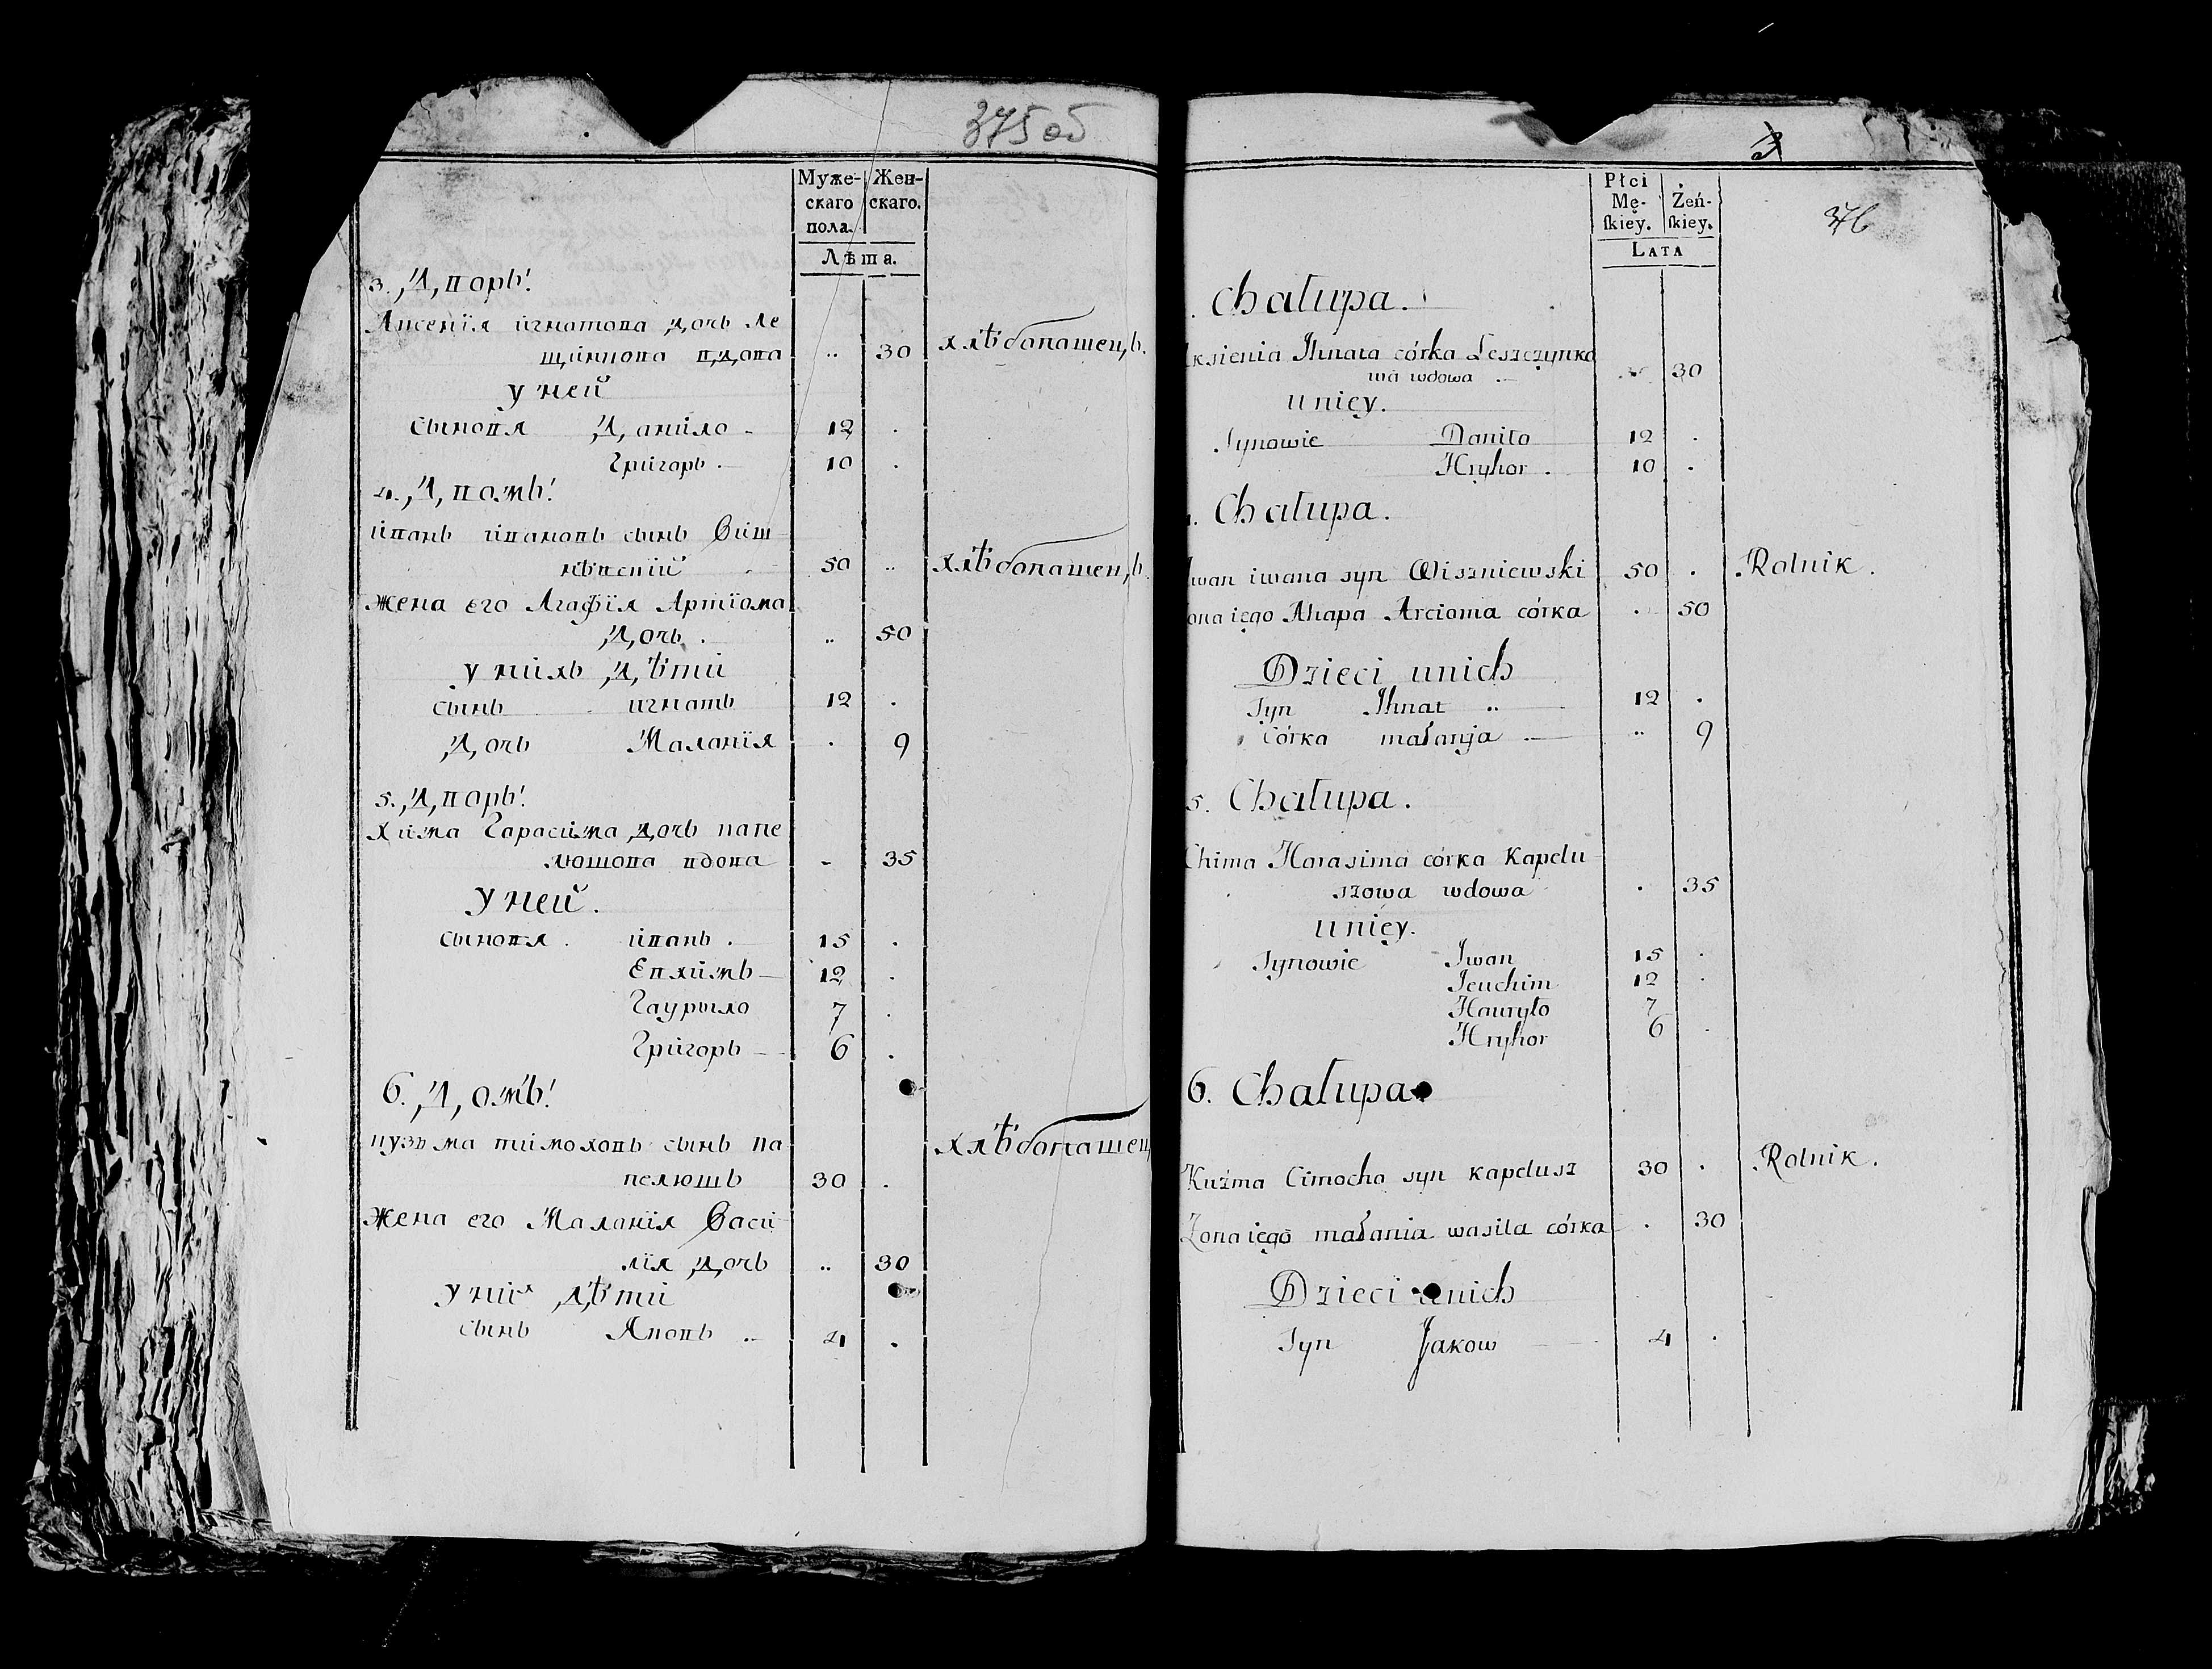 375 об
Муже-
скаго
пола.
Жен-
скаго.
Лѣта.
3. Дворъ.
Аксенія игнатова дочь Ле
щинкова вдова .. 30 хлѣбопашецъ.
у ней
сыновя Данило - 12 .
Григоръ . 10 .
4. Домъ.
иванъ ивановъ сынъ Виш
нѣвскій 50 .. хлѣбопашецъ
жена его Агафія Артіома
дочь . .. 50
у нихъ дѣти
сынъ игнатъ 12 .
дочь Маланія . 9
5. Дворъ.
Хима Гарасима дочь капе
люшова вдова - 35
у ней.
сыновя . иванъ . 15 .
Евхимъ 12 .
Гаурыло 7 .
Григоръ 6 .
6. Домъ.
кузьма тимоховъ сынъ ка
пелюшъ 30 . хлѣбопашец
Жена его Маланія Васи
лія дочь .. 30
у них дѣти
сынъ Яковъ .. 4 .
3
376
Płci
Mę-
skiey.
Żeń-
skiey.
LATA
. Chałupa.
ksienia Ihnata córka Leszczynko
wa wdowa .. 30
u niey.
Synowie Daniło 12 .
Hryhor . 10 .
. Chałupa.
Iwan iwana syn Wiszniewski 50 . Rolnik.
ona iego Ahapa Arcioma córka . 50
Dzieci unich
Syn Ihnat .. 12 .
Córka małanja .. 9
5. Chałupa.
Chima Harasima córka Kapelu
szowa wdowa . 35
u niey.
Synowie Iwan 15 .
Jeuchim 12 .
Hauryło 7
Hryhor 6 .
6. Chałupa
Kuźma Cimocha syn kapelusz 30 . Rolnik.
Żona iego małania wasila córka . 30
Dzieci unich
Syn Jakow 4 .